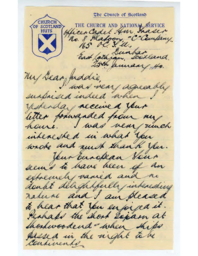 The Church of Scotland
CHURCH
OF
SCOTLAND
HUTS
THE CHURCH AND NATIONAL SERVICE
Officer Cadet
No. 8 Platoon "C" Company
165 O.C.T.U.
Dunbar
East Lothian, Scotland
January
My Dear
I was very agreeably
surprised indeed when
yesterday received your
letter forwarded from my
home. I was very much
interested in what you
wrote and must thank you.
Your European tour
seems to have been of an
extremely varied and no
doubt delightfully interesting
nature and I am pleased
to hear that you enjoyed it.
Perhaps the short sojourn at
when ships
passed in the night to be